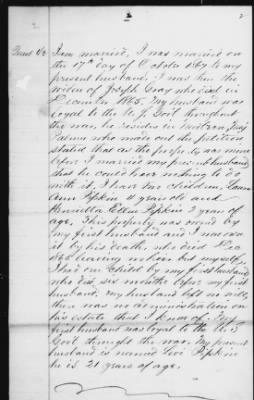 2
Quest 1/2 I am married, I was married on
the 17th day of October 1867 to my
present husband. I was then the
widow of Joseph Gray who died in
December 1865. My husband was
loyal to the U. S. Govt throughout
the war, he resides in
who made out the petition
stated that as the property was mine
before I married my present husband
that he could have nothing to do
with it. I have two children,
Ann Pipkin 4 years old and
Henrietta Ellen Pipkin 2 years of
age. This property was owned by
my first husband and I was own
it by his death, who died Dec
1865 leaving no heir but myself,
I had one child by my first husband
who died six months before my first
husband. My husband left no will,
there was no administration on
his estate that I know of. My
first husband was loyal to the U. S.
Govt through the war. My present
husband is named Levi Pipkin
he is 21 years of age.